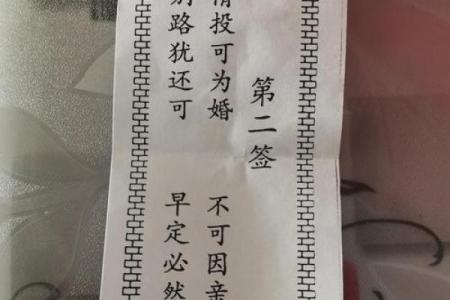 第二签
情投可为婚 不可因亲
别路犹还可 早定必然